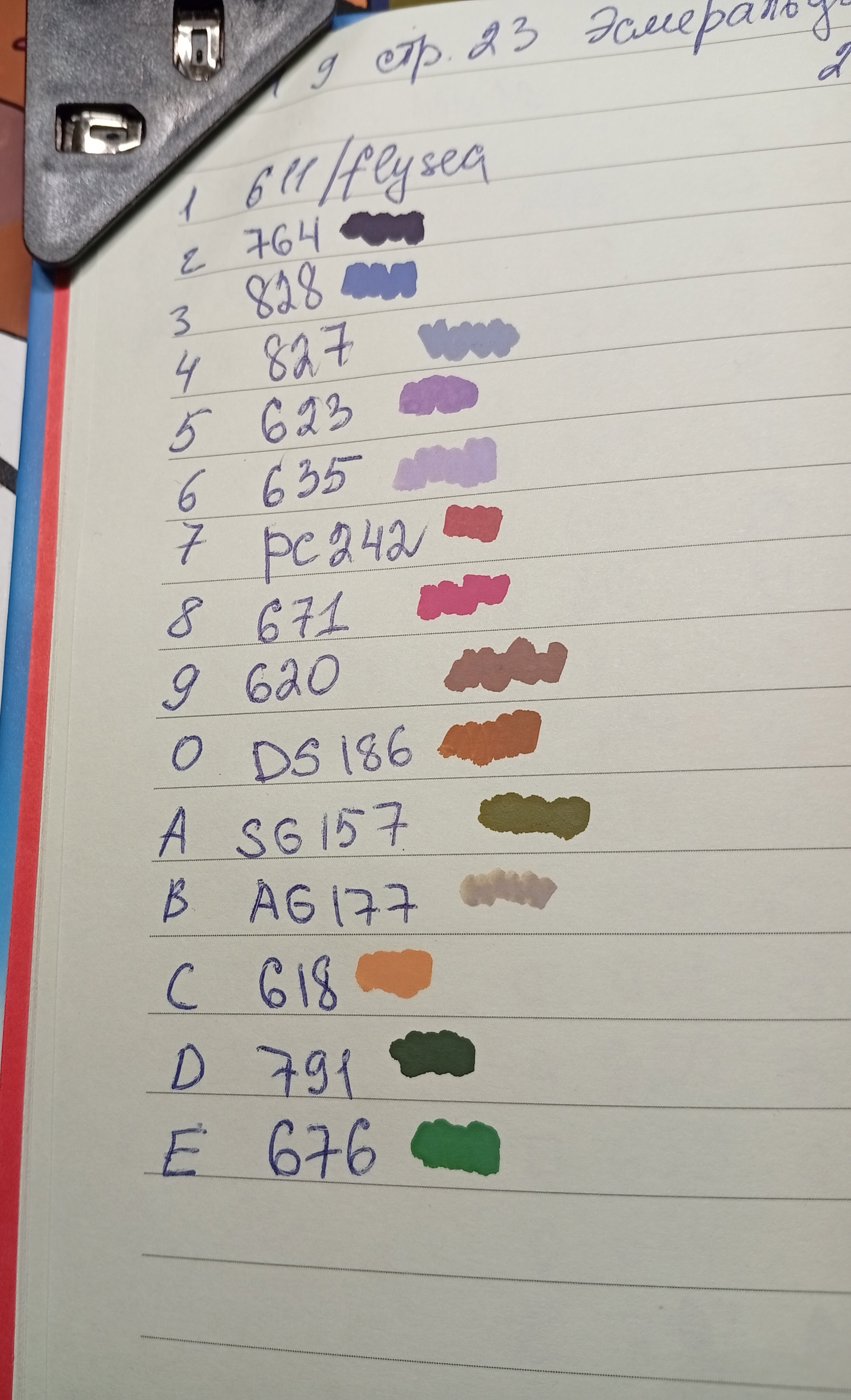 9 стр. 23 Эсмеральд
2
1 611/flysea
2 764
3 828
4 827
5 623
6 635
7 PC242
8 671
9 620
0 DS186
A SG157
B AG177
C 618
D 791
E 676